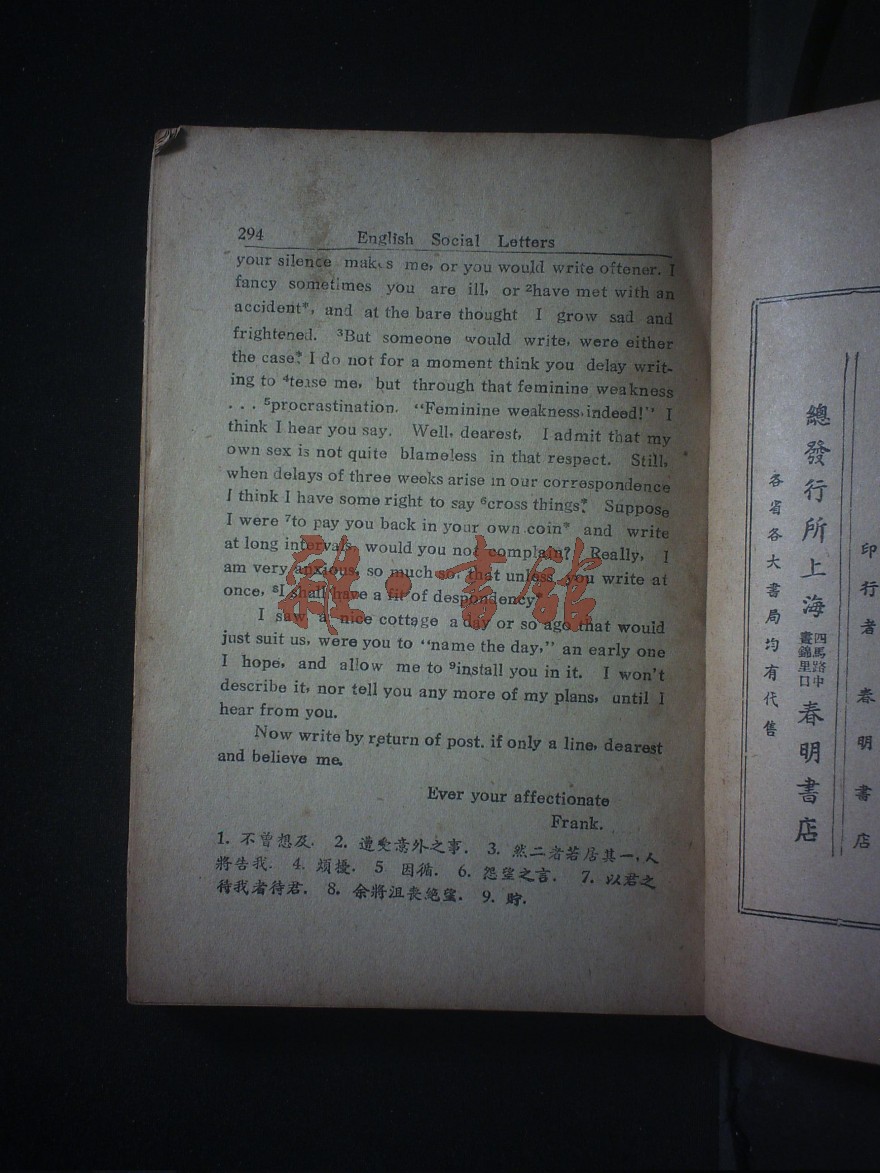 294 English Social Letters
your silence makes me, or you would write oftener. I
fancy sometimes you are ill, or ²have met with an
accident*, and at the bare thought I grow sad and
frightened. ³But someone would write, were either
the case*. I do not for a moment think you delay writ-
ing to ⁴tease me, but through that feminine weakness
. . . ⁵procrastination. “Feminine weakness, indeed!” I
think I hear you say. Well, dearest, I admit that my
own sex is not quite blameless in that respect. Still,
when delays of three weeks arise in our correspondence
I think I have some right to say ⁶cross things*. Suppose
I were ⁷to pay you back in your own coin* and write
at long intervals, would you not complain? Really, I
am very anxious, so much so, that unless you write at
once, ⁸I shall have a fit of despondency*.
I saw a nice cottage a day or so ago that would
just suit us, were you to “name the day,” an early one
I hope, and allow me to ⁹install you in it. I won't
describe it, nor tell you any more of my plans, until I
hear from you.
Now write by return of post. if only a line, dearest
and believe me.
Ever your affectionate
Frank.
1. 不曾想及. 2. 遭受意外之事. 3. 然二者若居其一,人
將告我. 4. 煩擾. 5 因循. 6. 怨望之言. 7. 以君之
待我者待君. 8. 余將沮喪絕望. 9. 貯.
雜·書館
印行者 春明書店
總發行所上海四馬路中畫錦里口春明書店
各省各大書局均有代售